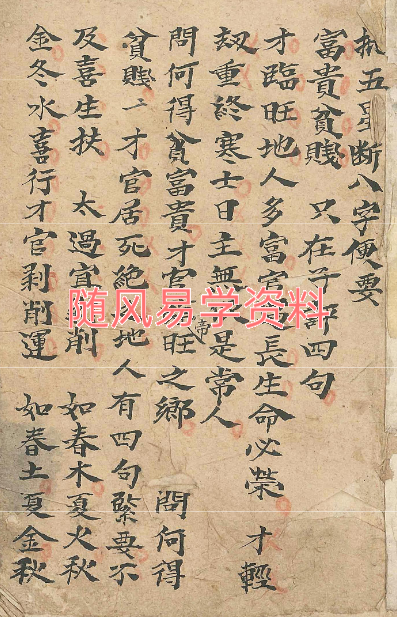 五星断八字便要
富貴貧賤 只在四句
才臨旺地人多富官長生命必榮 才輕
刼重終寒士日主無是常人
問何得貧富貴才官帝旺之鄉 問何得
貧賤才官居死絶地人有四句緊要不
及喜生扶 太過宜削 如春木夏火秋
金冬水喜行才官剥削運 如春土夏金秋
随风易学资料